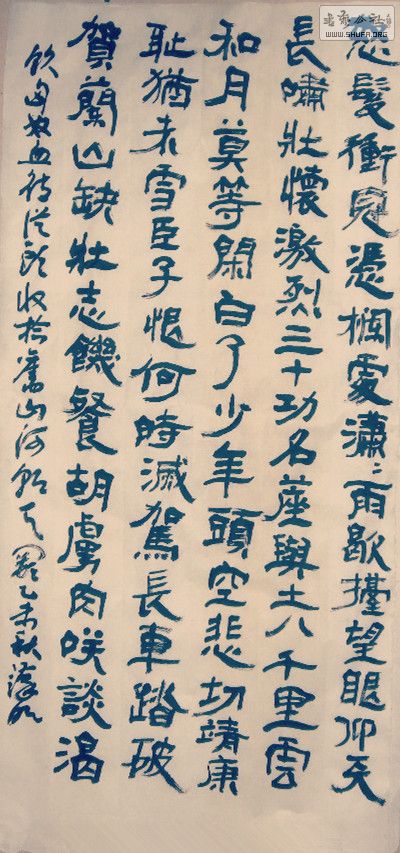 書藝公社
WWW.SHUFA.ORG
怒髮衝冠憑欄處瀟〻雨歇擡望眼仰天
長嘯壯懷激烈三十功名塵與土八千里雲
和月莫等閑白了少年頭空悲切靖康
恥猶未雪臣子恨何時滅駕長車踏破
賀蘭山缺壯志饑餐胡虜肉笑談渴
飲匈奴血待從頭收拾舊山河朝天闕乙未秋